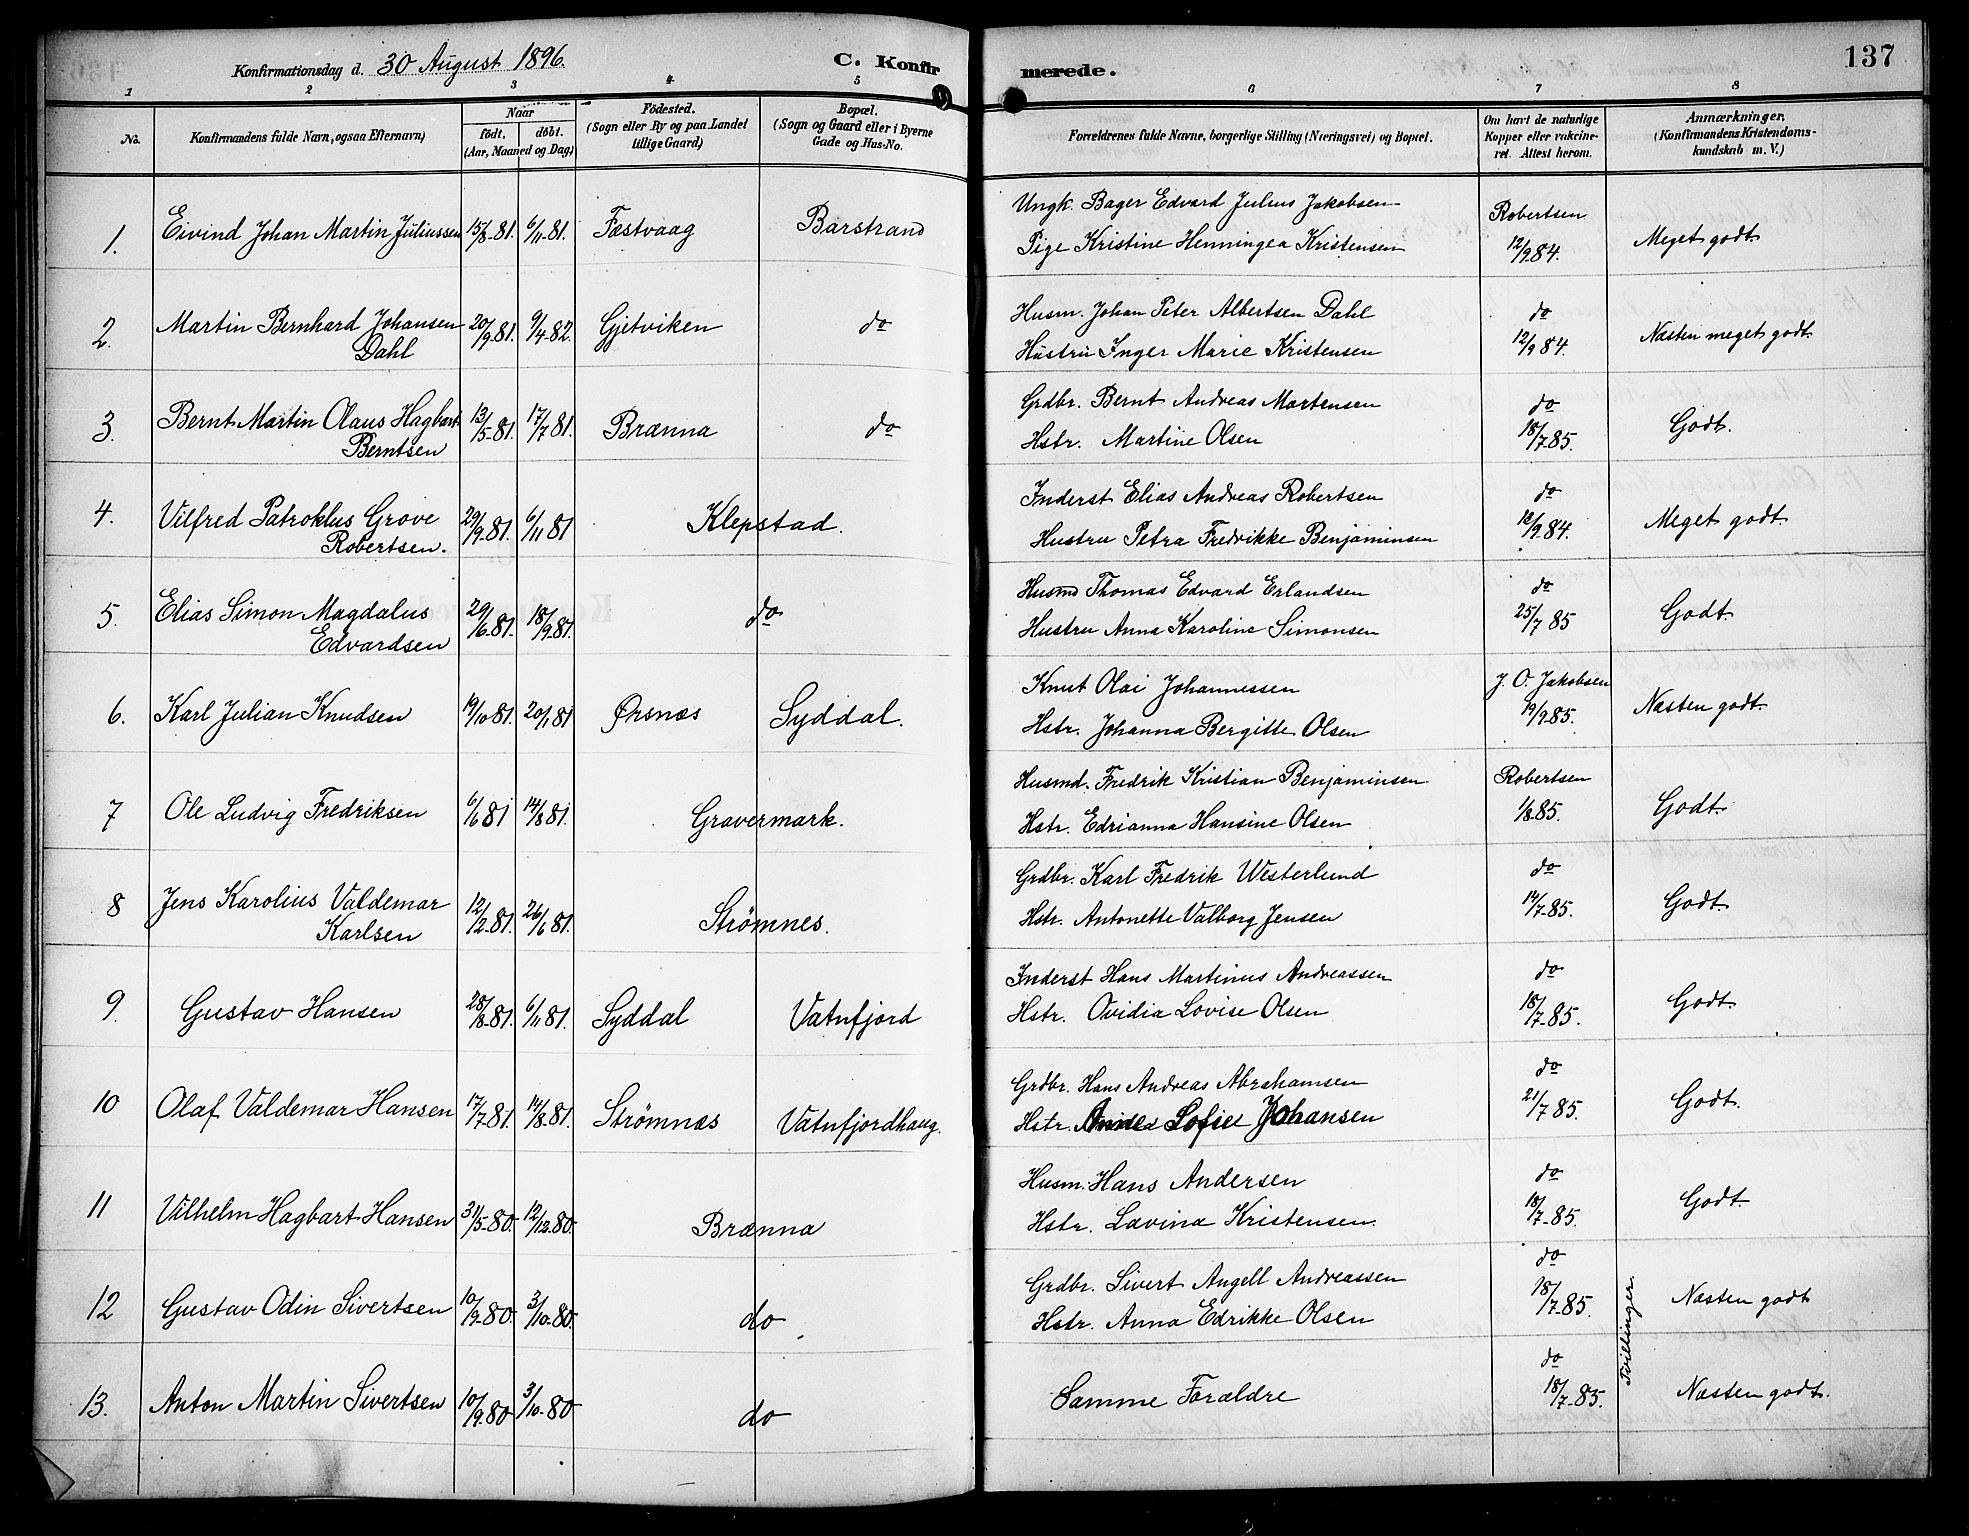 Konfirmationsdag d. 30 August 1896. C. Konfirmerede. 137
1 2 3 4 5 6 7 8
No. Konfirmandens fulde Navn, ogsaa Efternavn) Naar født. døbt. (Aar, Maaned og Dag) Fødested. (Sogn eller By og paa Landet tillige Gaard) Bopæl. (Sogn og Gaard eller i Byerne Gade og Hus-No. Forældrenes fulde Navne, borgerlige Stilling (Næringsvei) og Bopæl. Om havt de naturlige Kopper eller vakcineret. Attest herom. Anmærkninger, (Konfirmandens Kristendomskundskab m. V.)
1. Eivind Johan Martin Juliussen 15/8-81. 6/11-81. Fæstvaag Barstrand Ungk. Bager Edvard Julius Jakobsen Robertsen
Pige Kristine Henningea Kristensen 12/9 84. Meget godt.
2. Martin Bernhard Johansen 20/9-81. 9/4-82. Gjetviken do Husm. Johan Peter Albertsen Dahl do
Dahl Hustru Inger Marie Kristensen 12/9 84. Næsten meget godt.
3. Bernt Martin Olaus Hagbart 13/5-81. 17/7 81. Brænna do Grdbr. Bernt Andreas Mortensen do
Berntsen Hstr. Martine Olsen 18/7-85. Godt.
4. Vilfred Patroklus Grove 29/9-81. 6/11 81 Klepstad. Inderst Elias Andreas Robertsen do
Robertsen. Hustru Petra Fredrikke Benjaminsen 12/9 84. Meget godt
5. Elias Simon Magdalus 29/6-81. 18/9-81. do Husmd Thomas Edvard Erlandsen do
Edvardsen Hustru Anna Karoline Simonsen 25/7 85 Godt
6. Karl Julian Knudsen 19/10 81. 20/1 81 Ørsnæs Syddal. Knut Olai Johannessen J. O. Jakobsen
Hstr. Johanna Bergitte Olsen 19/9 85. Næsten godt.
7 Ole Ludvig Fredriksen 6/6 81 14/8 81. Gravermark. Husmd. Fredrik Kristian Benjaminsen Robertsen
Hstr. Edrianna Hansine Olsen 1/8 85. Godt.
8 Jens Karolius Valdemar 12/2-81. 26/6 81. Strømnes. Grdbr. Karl Fredrik Westerlund do
Karlsen Hstr. Antonette Valborg Jensen 14/7-85. Godt
9. Gustav Hansen 28/8-81. 6/11 81. Syddal Vatnfjord Inderst Hans Martinus Andreassen do
Hstr. Ovidia Lovise Olsen 18/7-85. Godt.
10 Olaf Valdemar Hansen 17/7 81. 14/8-81. Strømnæs Vatnfjordhaug. Grdbr. Hans Andreas Abrahamsen do
Hstr. Sofie Johansen 21/7 85. Godt.
11 Vilhelm Hagbart Hansen 31/5-80. 12/12-80. Brænna Husm. Hans Andersen do
Hstr. Lavina Kristensen. 18/7-85. Godt.
12 Gustav Odin Sivertsen 10/9-80. 3/10-80. do Grdbr. Sivert Angell Andreassen do
Hstr. Anna Edrikke Olsen 18/7-85. Næsten godt
Tvillinger.
13. Anton Martin Sivertsen 10/9-80 3/10-80 do Samme Forældre do
18/7-85. Næsten godt.